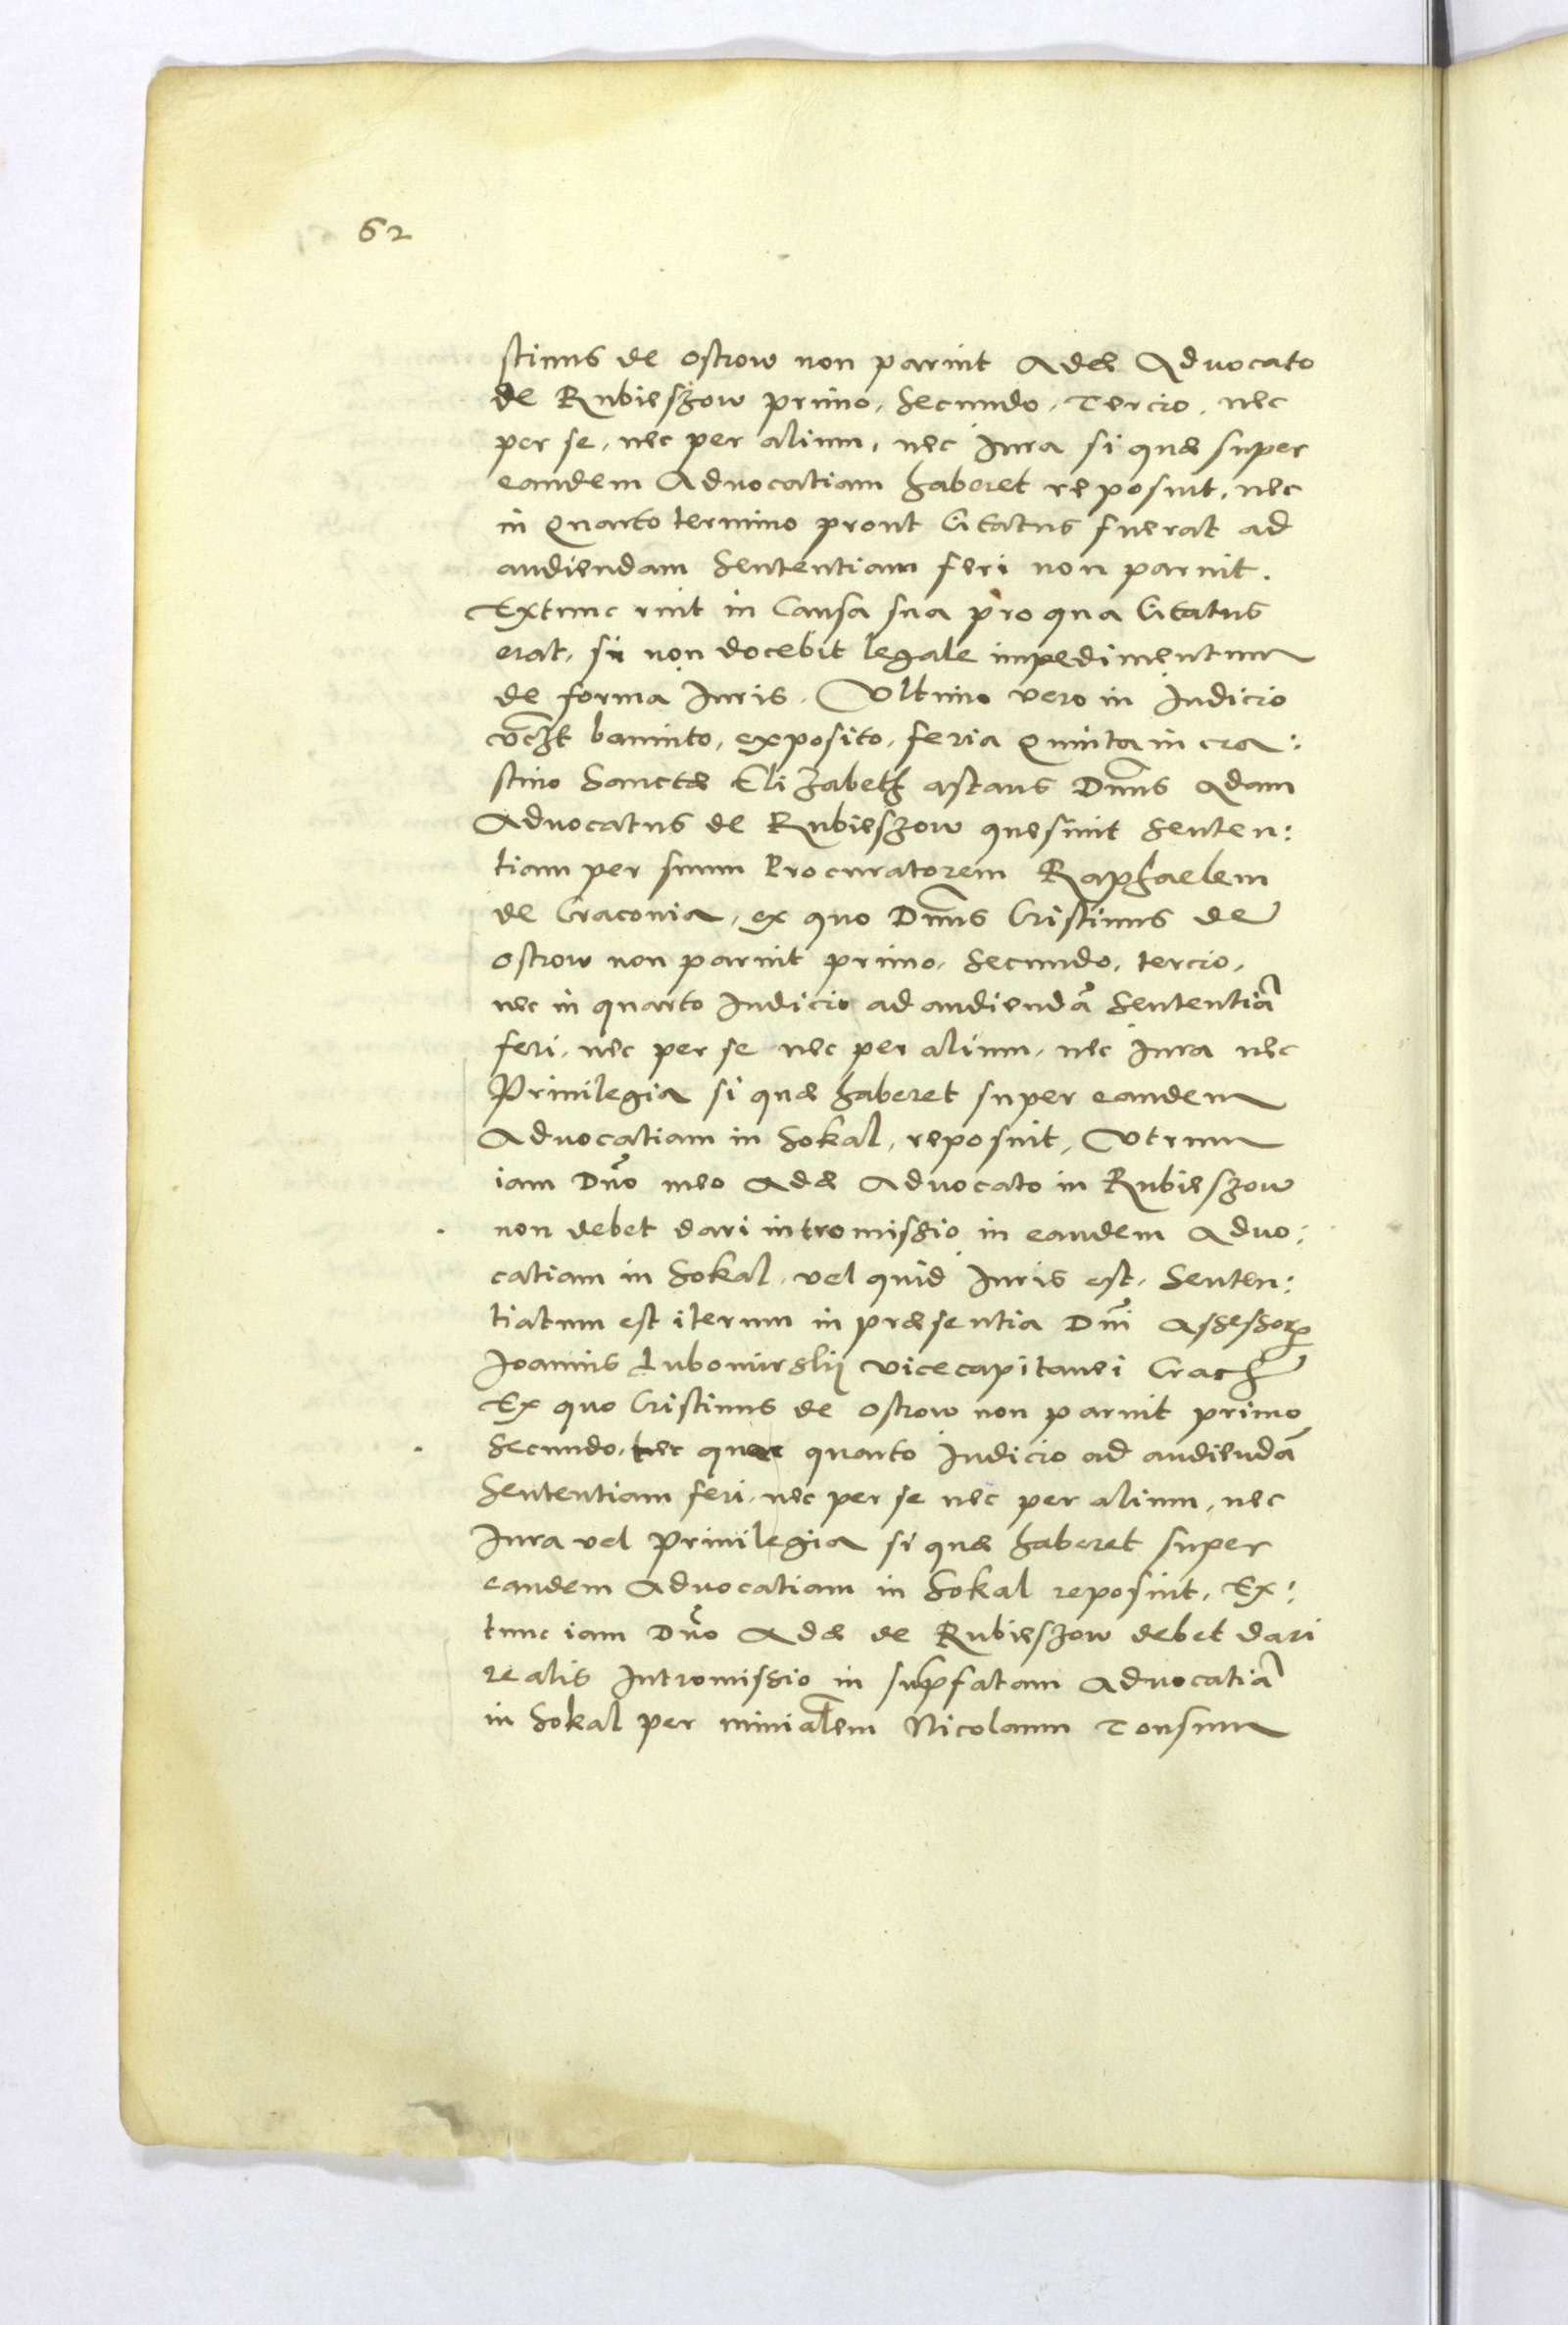 62
stinus de Ostrow non paruit Adæ Advocato
de Rubieszow primo, Secundo, Tercio, nec
per se, nec per alium, nec Iura si quæ super
eandem Advocatiam haberet reposuit, nec
in Quarto termino prout Citatus fuerat ad
audiendam Sententiam feri non paruit.
Extunc ruit in Causa sua pro qua Citatus
erat, si non docebit legale impedimentum
de forma Iuris. Ultimo vero in Iudicio
bannito, exposito, feria Quinta in cra:
stino Sanctæ Elizabeth astans Dnus Adam
Advocatus de Rubieszow quesiuit Senten:
tiam per suum Procuratorem Raphaelem
de Cracouia, ex quo Dnus Cristinus de
Ostrow non paruit primo, Secundo, tercio,
nec in quarto Iudicio ad audiendã Sententiã
feri, nec per se nec per alium, nec Iura nec
Priuilegia si quæ haberet super eandem
Advocatiam in Sokal, reposuit, Utrum
iam Dno meo Adæ Advocato in Rubieszow
non debet dari intromissio in eandem Advo:
catiam in Sokal, vel quid Iuris est. Senten:
tiatum est iterum in præsentia Dni Assessorꝝ
Ioannis Lubomirslij Vicecapitanei Crach
Ex quo Cristinus de Ostrow non paruit primo
Secundo, nec quarto Iudicio ad audiendã
Sententiam feri, nec per se nec per alium, nec
Iura vel Priuilegia si quæ haberet super
eandem Advocatiam in Sokal reposuit, Ex:
tunc iam Dno Adæ de Rubieszow debet dari
realis Intromissio in supfatam Advocatiã
in Sokal per minialem Nicolaum Tonsum